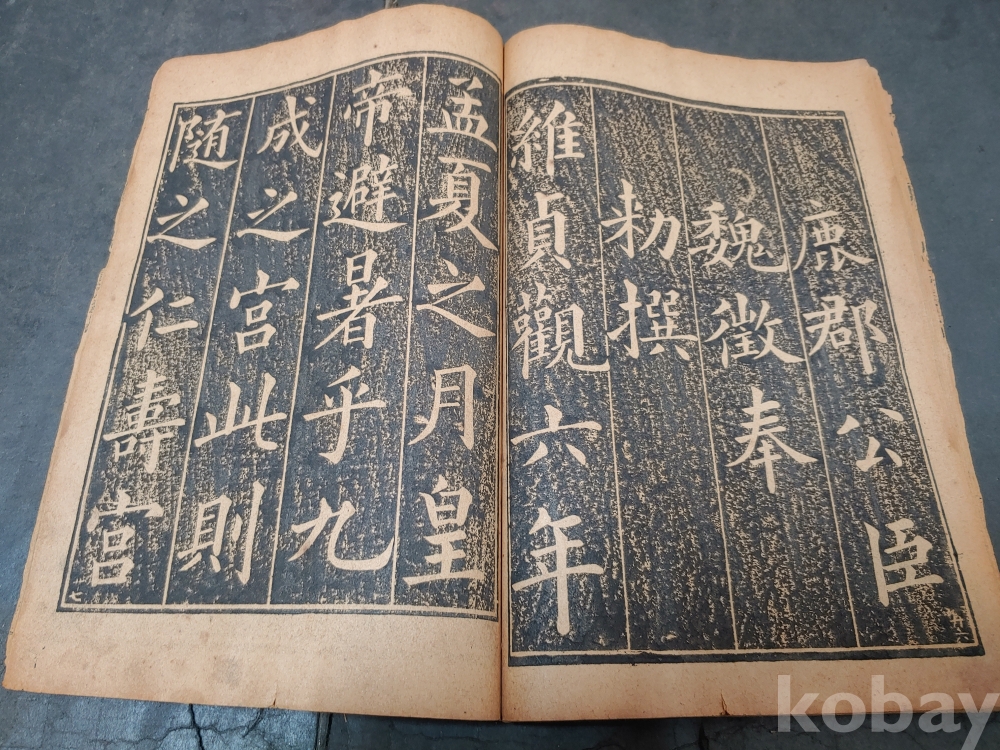 鹿郡公臣
魏徵奉
勑撰
維貞觀六年
孟夏之月皇
帝避暑乎九
成之宮此則
随之仁壽宮
七
kobay